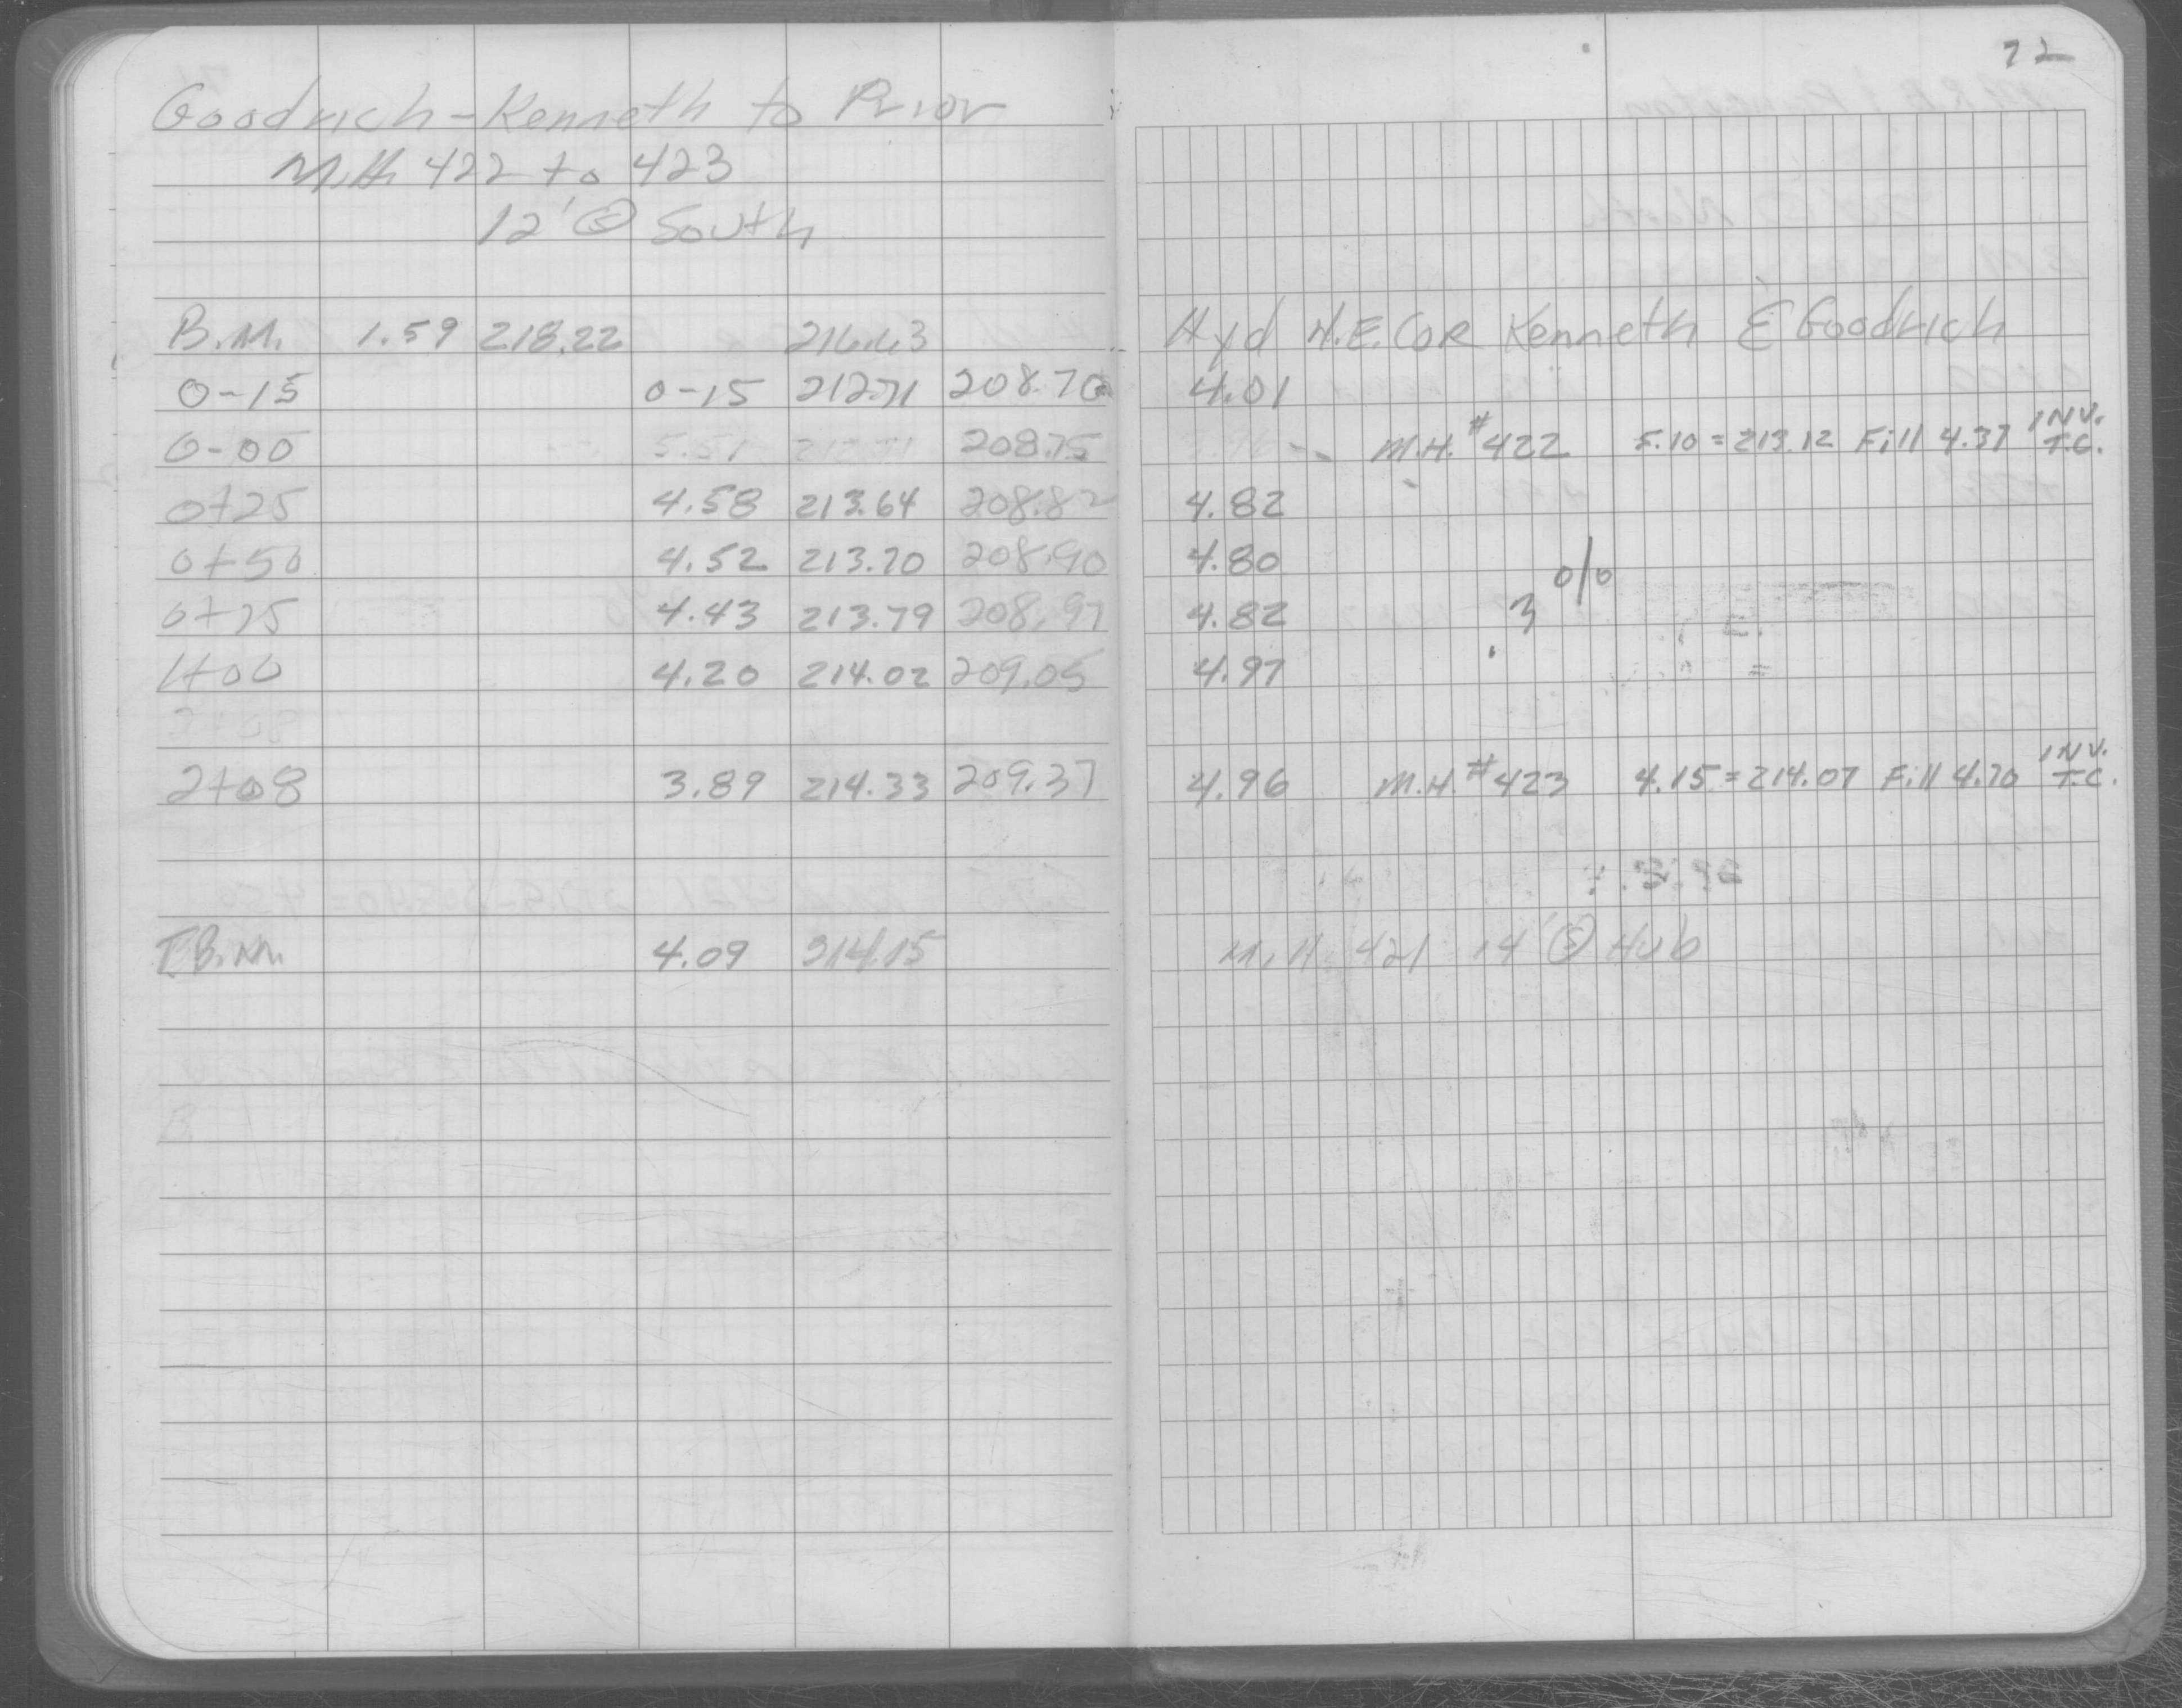 72
Goodrich - Kenneth to Prior
M.H. 422 to 423
12' Ⓢ South
B.M. 1.59 218.22 216.63 Hyd N.E. COR Kenneth & Goodrich
0-15 0-15 212.71 208.70 4.01
0-00 5.51 212.71 208.75 M.H. #422 5.10 = 213.12 Fill 4.37 INV. T.C.
0+25 4.58 213.64 208.82 4.82
0+50 4.52 213.70 208.90 4.80
0+75 4.43 213.79 208.97 4.82 .3 %
1+00 4.20 214.02 209.05 4.97
2+08
2+08 3.89 214.33 209.37 4.96 M.H. #423 4.15 = 214.07 Fill 4.70 INV. T.C.
T.B.M. 4.09 214.15 M.H. 421 14' Ⓢ Hub